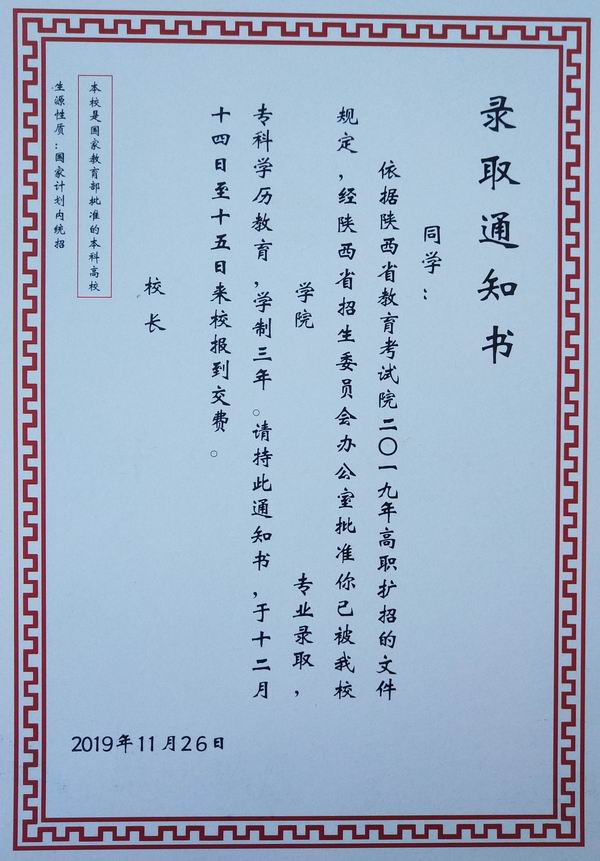 录取通知书
同学：
依据陕西省教育考试院二〇一九年高职扩招的文件
规定，经陕西省招生委员会办公室批准你已被我校
学院 专业录取，
专科学历教育，学制三年。请持此通知书，于十二月
十四日至十五日来校报到交费。
校长
本校是国家教育部批准的本科高校
生源性质：国家计划内统招
2019年11月26日